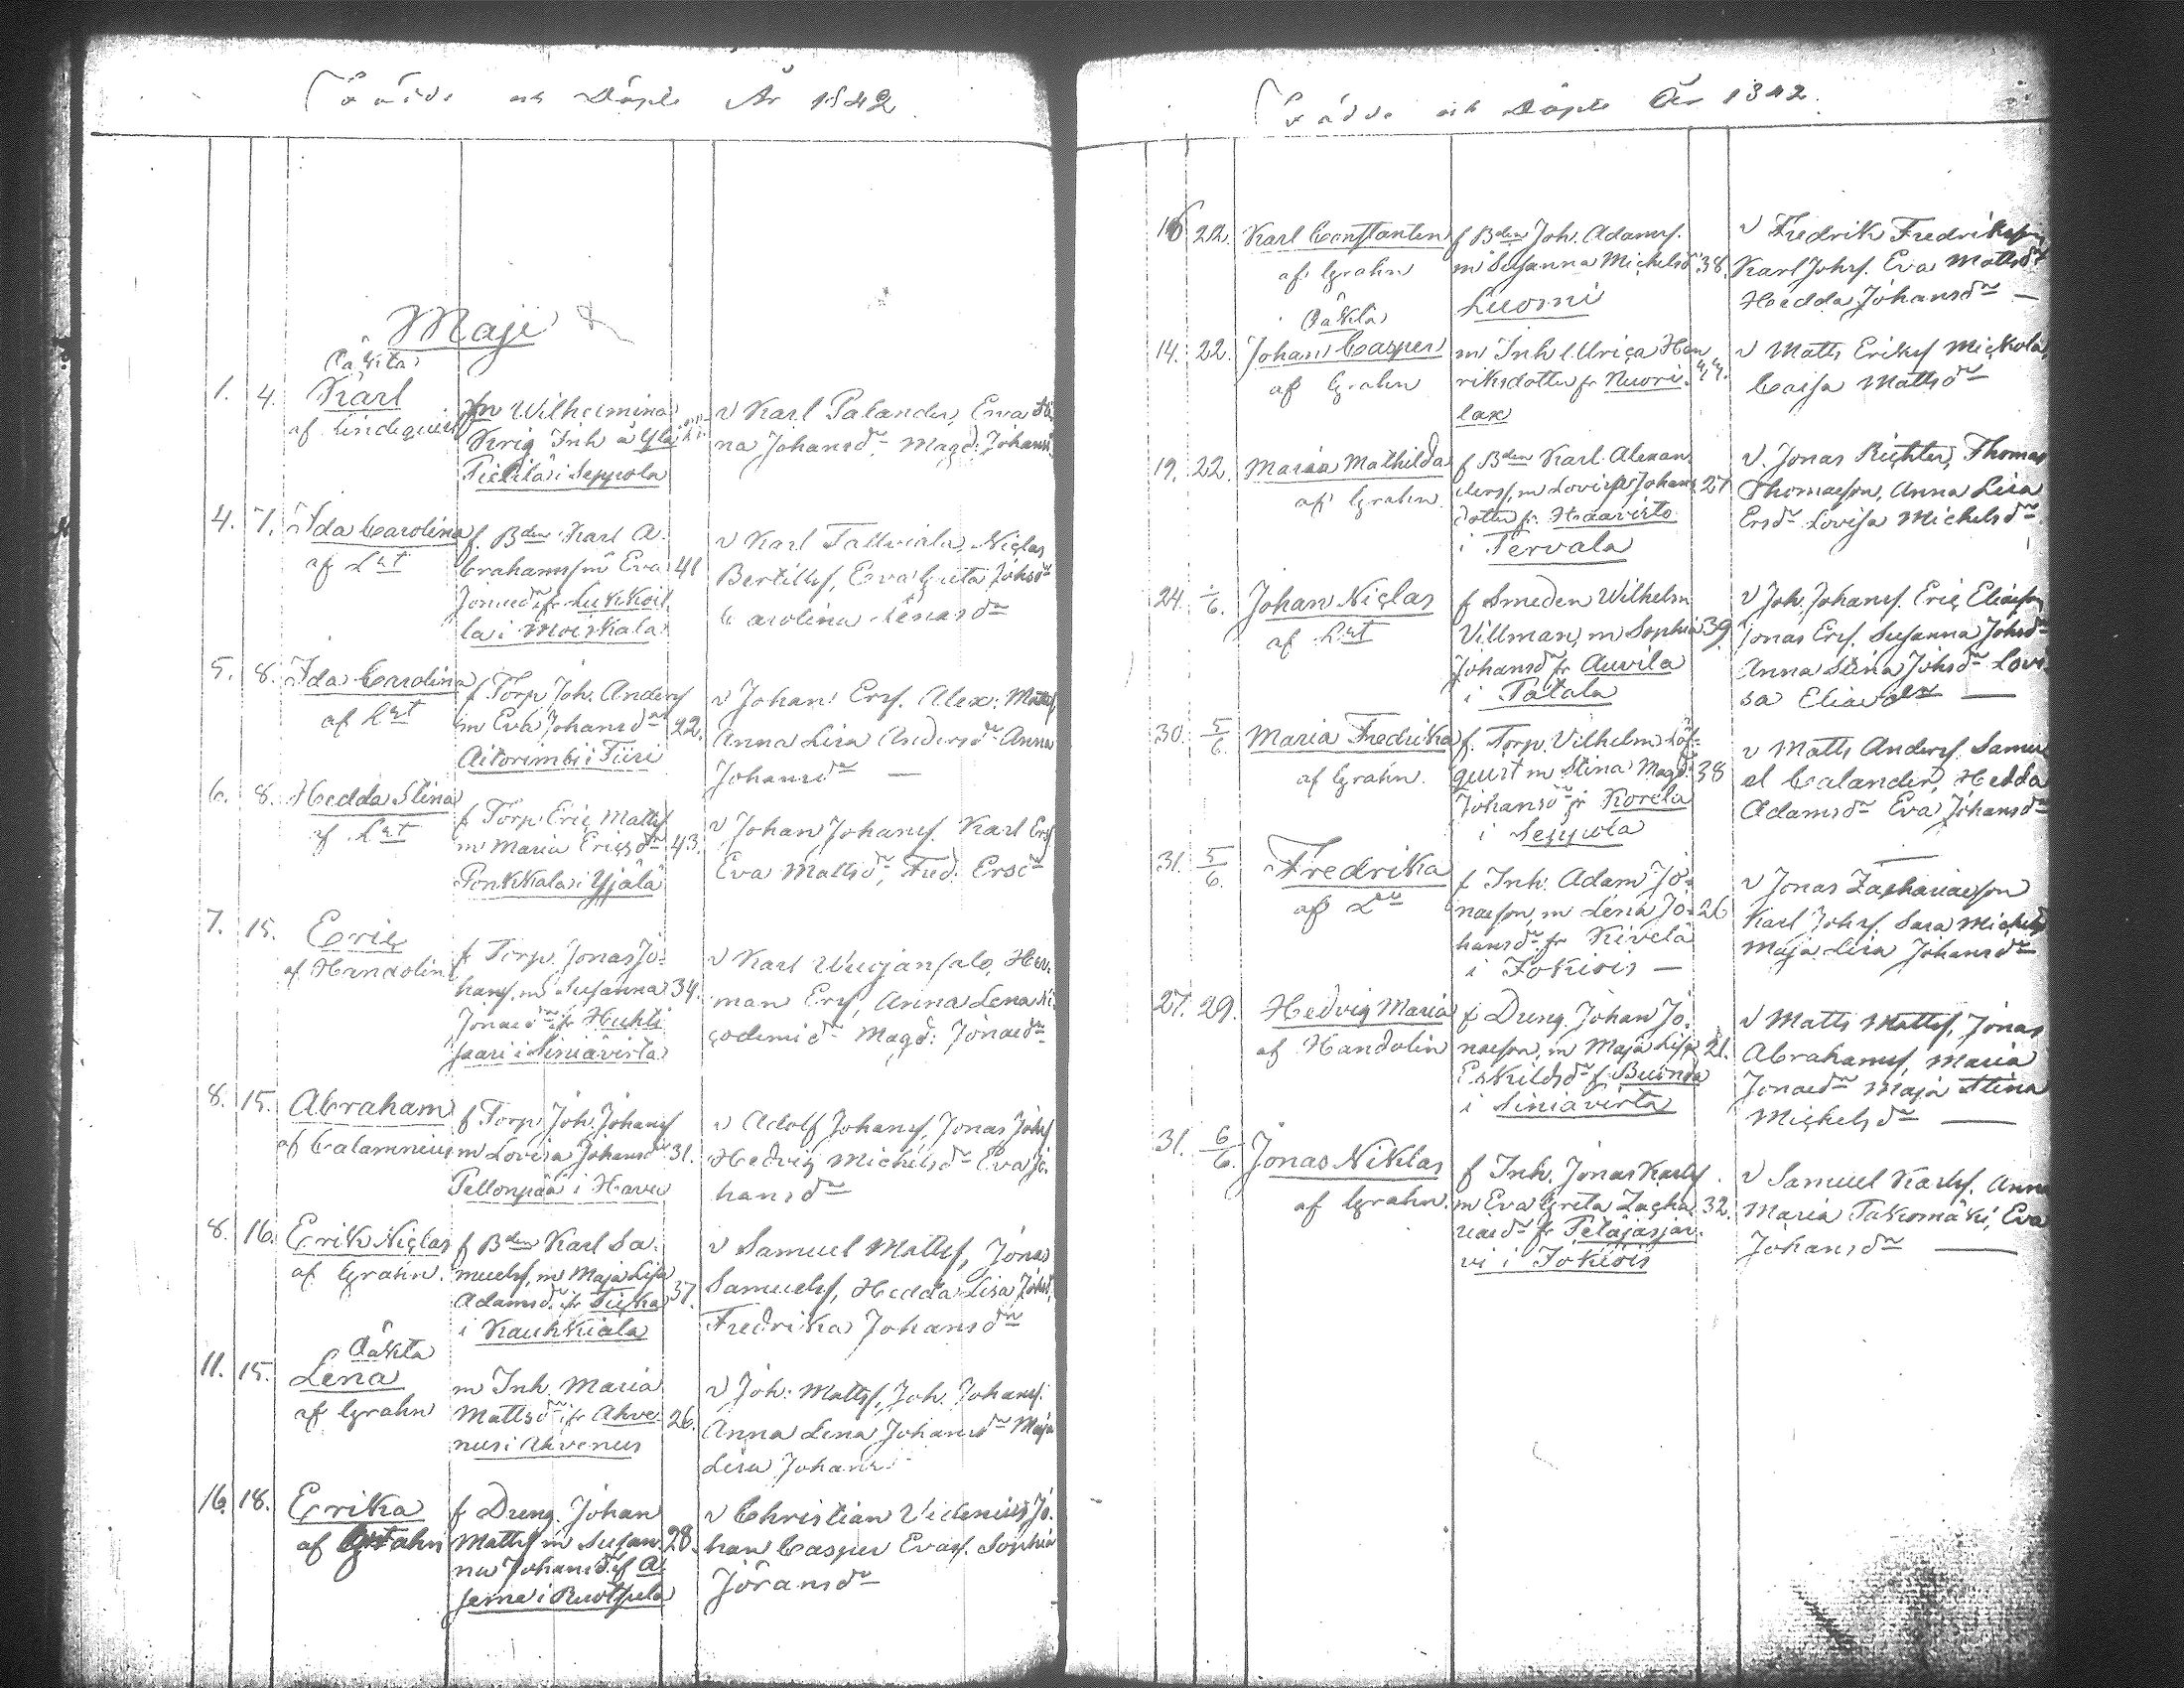 Födde och Döpte År 1842
Maji
Oäkta
1. 4. Karl
af Lindequist
m Wilhelmina
Krig Inh å Yla
Pietilä i Seppola
v Karl Palander, Eva
na Johansdr Magd: Johans
4. 7. Ida Carolina
af Dt
f. Bden Karl A-
brahamss m Eva 41
Jonaedr fr Lukkoil
la i Moiskala
v Karl Tallviala, Niclas
Bertills, Eva Greta Johsdr
Carolina Lenasdr
5. 8. Ida Carolina
af Dt
f Torp Joh. Anders
m Eva Johansdr 22.
Aitorimbi i Tiiri
v Johan Ers. Alex: Matts
Anna Lisa Andersdr Anna
Johansdr —
6. 8. Hedda Stina
af Dt
f Torp Eric Matts
m Maria Ericsdr 43.
Ponkkala i Yjälä
v Johan Johans. Karl Ers
Eva Mattsdr, Fred. Ersdr
7. 15. Eric
af Handolin
f Torp. Jonas Jo-
hans. m Susanna 34.
Jonaedr fr Huhti
saari i Siniävirta
v Karl Wuojansalo, Her-
man Ers, Anna Lena Ni
codemidr Magd: Jonaedr
8. 15. Abraham
af Calamnius
f Torp Joh. Johans
m Lovisa Johansdr 31.
Pellonpää i Haveri
v Adolf Johans, Jonas Johs
Hedvig Michelsdr Eva Jo
hansdr
8. 16. Erik Niclas
af Grahn.
f Bden Karl Sa-
muels, m Maja Lisa
Adamsdr fr Tuska 37.
i Kaukkiala
v Samuel Matts, Jonas
Samuels, Hedda Lisa Johs
Fredrika Johansdr
Oäkta
11. 15. Lena
af Grahn
m Inh. Maria
Mattsdr fr Ahve- 26.
nus i Ahvenus
v Joh: Matts, Joh. Johans.
Anna Lena Johansdr Maja
Lisa Johans
16. 18. Erika
af Grahn
f Dreng. Johan
Matts m Susan- 28.
na Johansdr f A-
seme i Ruotsula
v Christian Videnius, Jo-
han Casper Evas. Sophia
Jöransdr
Födde och Döpte År 1842.
16 22. Karl Constantin
af Grahn
f Bden Joh. Adams.
m Susanna Michelsd 38.
Luomi
v Fredrik Fredriksson
Karl Johs. Eva Mattsdr
Hedda Johansdr —
Oäkta
14. 22. Johan Casper
af Grahn
m Inh Ulrica Hen
riksdotter fr Nuori-
lax
v Matts Eriks Mickola
Caisa Mattsdr
19. 22. Maria Mathilda
af Grahn
f Bden Karl Alexan
ders, m Lovisa Johans 27
dotter fr Haavisto
i Tervala
v. Jonas Richter, Thomas
Thomasson, Anna Lisa
Ersdr Lovisa Michelsdr
24. 1/6. Johan Niclas
af Dt
f Smeden Wilhelm
Villman, m Sophia 39.
Johansdr fr Auvila
i Patala
v Joh. Johans. Eric Eliasson
Jonas Ers. Susanna Johsdr
Anna Stina Johsdr Lovi-
sa Eliaedr —
30. 5/6. Maria Fredrika
af Grahn.
f. Torp. Vilhelm Löf-
quist m Stina Magd: 38
Johansdr fr Korela
i Seppola
v Matts Anders. Samu
el Calander, Hedda
Adamsdr Eva Johansdr
31. 5/6. Fredrika
af Do
f Inh. Adam Jo-
nasson, m Lena Jo- 26
hansdr fr Kivelä
i Jokiois —
v Jonas Zachariasson
Karl Johs. Sara Michels
Maja Lisa Johansdr
27. 29. Hedvig Maria
af Handolin
f Dreng. Johan Jo-
nasson, m Maja Lisa 21.
Eskildsdr f Buonsa
i Siniävirta
v Matts Matts, Jonas
Abrahams, Maria
Jonaedr Maja Stina
Michelsdr —
31. 6/6. Jonas Niklas
af Grahn.
f Inh. Jonas Karls
m Eva Greta Zacha 32.
riaedr fr Petäjäsjär-
vi i Jokiois
v Samuel Karls. Anna
Maria Takomäki, Eva
Johansdr —